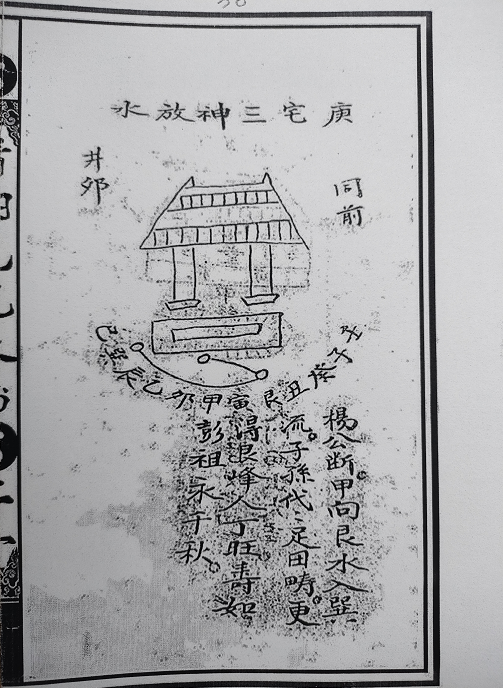 庚宅三神放水
同前
井夘
巳巽辰乙夘甲寅艮丑癸子
楊公断。甲向艮水入巽
流。子孫代、足田疇。更
得退峰人丁旺壽如
彭祖永千秋。